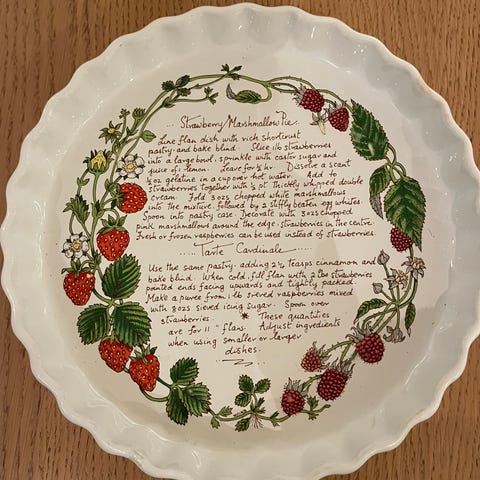 Strawberry Marshmallow Pie.
Line flan dish with rich shortcrust
pastry and bake blind. Slice 1 lb strawberries
into a large bowl, sprinkle with castor sugar and
juice of ½ lemon. Leave for ½ hr. Dissolve a scant
½ oz gelatine in a cup over hot water. Add to
strawberries together with ½ pt thickly whipped double
cream. Fold 3 ozs chopped white marshmallows
into the mixture followed by 2 stiffly beaten egg whites
Spoon into pastry case. Decorate with 3 ozs chopped
pink marshmallows around the edge. Strawberries in the centre
Fresh or frozen raspberries can be used instead of strawberries.
Tarte Cardinale
Use the same pastry, adding 2½ teasps cinnamon and
bake blind. When cold, fill flan with 2 lbs strawberries
pointed ends facing upwards and tightly packed.
Make a puree from 1 lb sieved raspberries mixed
with 8 ozs sieved icing sugar. Spoon over
strawberries. * These quantities
are for 11" flans. Adjust ingredients
when using smaller or larger
dishes.